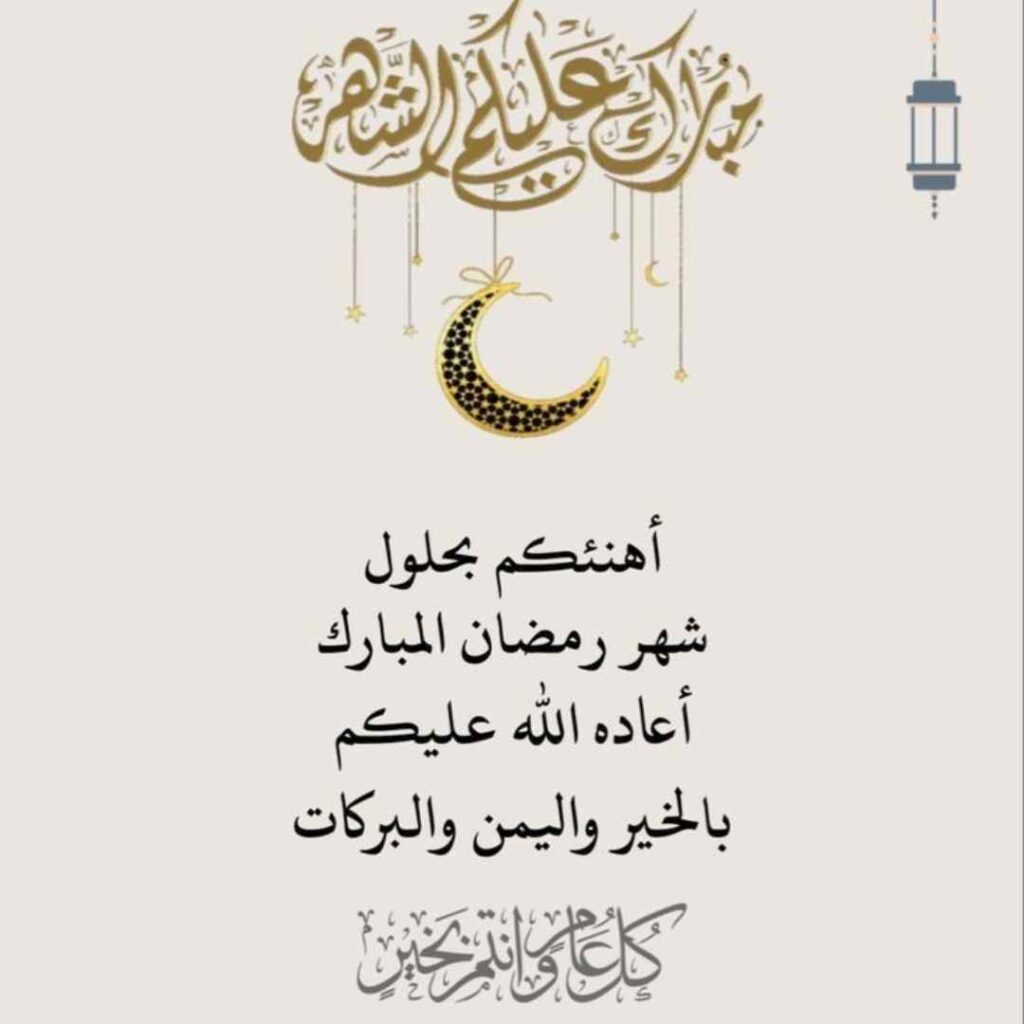 مبارك عليكم الشهر
أهنئكم بحلول
شهر رمضان المبارك
أعاده الله عليكم
بالخير واليمن والبركات
كل عام وانتم بخير